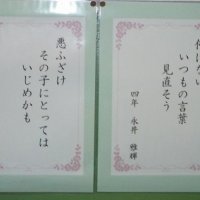 いつもの言葉
見直そう
四年 永井
悪ふざけ
その子にとっては
いじめかも